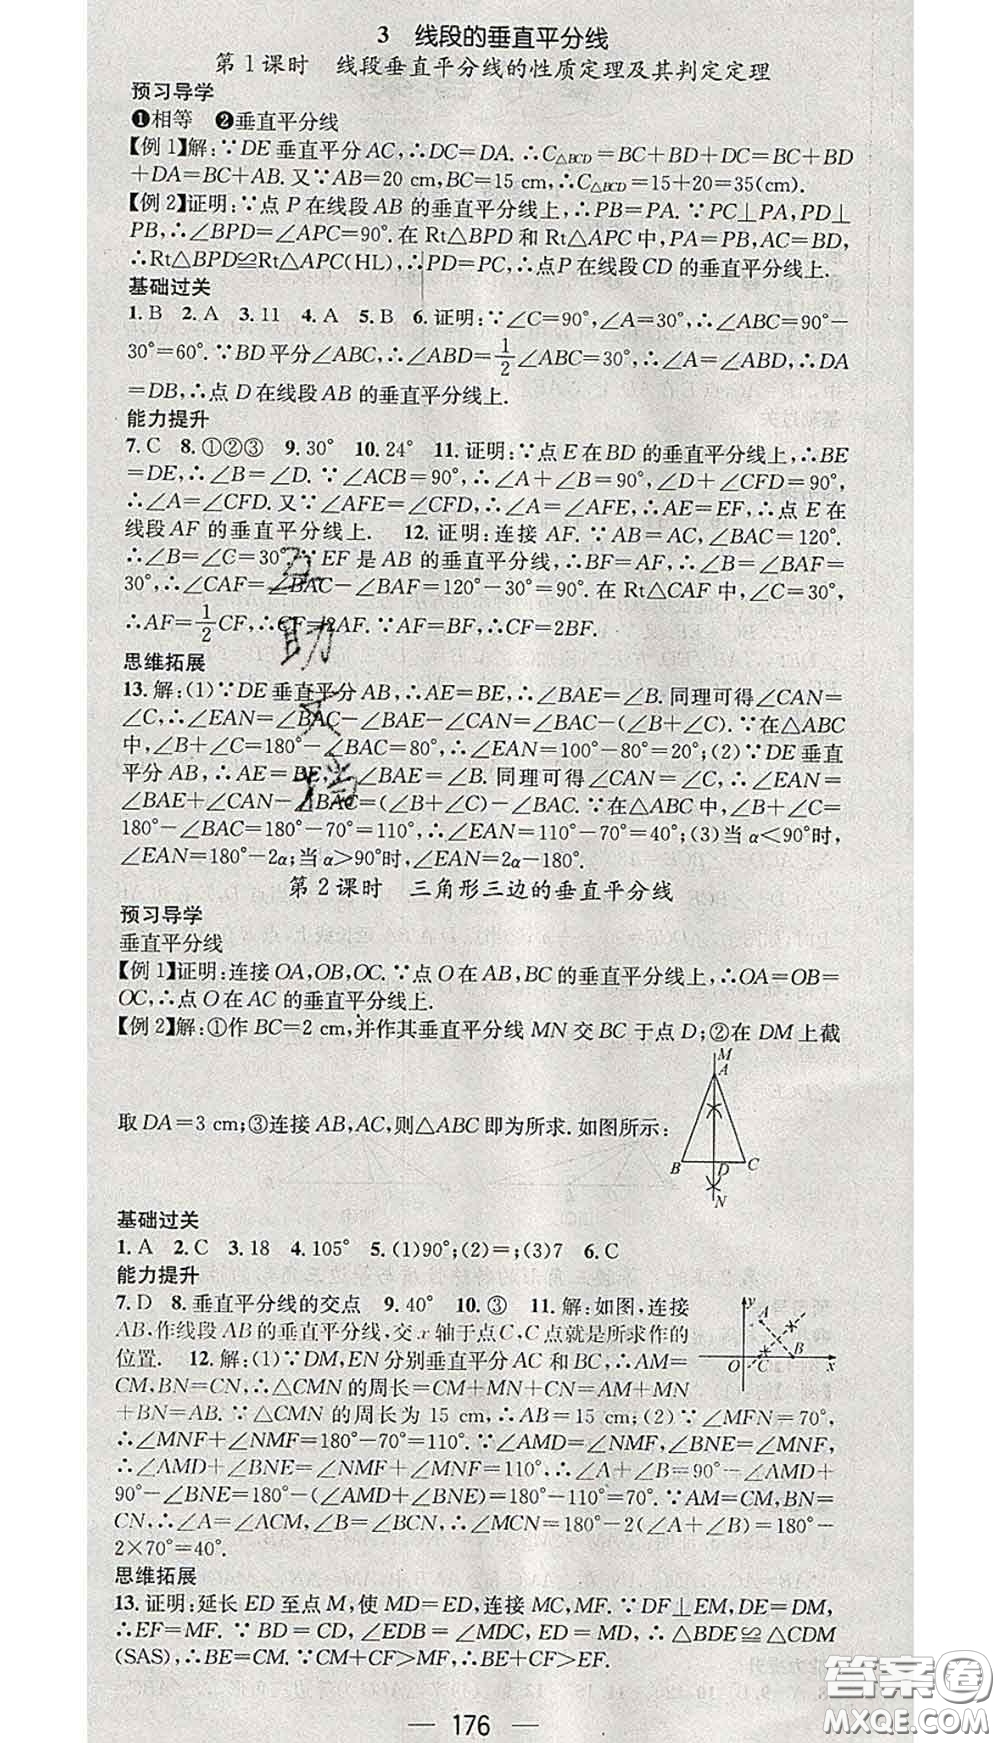 3 线段的垂直平分线
第1课时 线段垂直平分线的性质定理及其判定定理
预习导学
❶相等 ❷垂直平分线
【例1】解:∵DE垂直平分AC,∴DC=DA.∴C△BCD=BC+BD+DC=BC+BD
+DA=BC+AB.又∵AB=20 cm,BC=15 cm,∴C△BCD=15+20=35(cm).
【例2】证明:∵点P在线段AB的垂直平分线上,∴PB=PA.∵PC⊥PA,PD⊥
PB,∴∠BPD=∠APC=90°.在Rt△BPD和Rt△APC中,PA=PB,AC=BD,
∴Rt△BPD≌Rt△APC(HL),∴PD=PC,∴点P在线段CD的垂直平分线上.
基础过关
1.B 2.A 3.11 4.A 5.B 6.证明:∵∠C=90°,∠A=30°,∴∠ABC=90°-
30°=60°.∵BD平分∠ABC,∴∠ABD=1/2∠ABC=30°,∴∠A=∠ABD,∴DA
=DB,∴点D在线段AB的垂直平分线上.
能力提升
7.C 8.①②③ 9.30° 10.24° 11.证明:∵点E在BD的垂直平分线上,∴BE
=DE,∴∠B=∠D.∵∠ACB=90°,∴∠A+∠B=90°,∠D+∠CFD=90°,
∴∠A=∠CFD.又∵∠AFE=∠CFD,∴∠A=∠AFE,∴AE=EF,∴点E在
线段AF的垂直平分线上. 12.证明:连接AF.∵AB=AC,∠BAC=120°.
∴∠B=∠C=30°.∵EF是AB的垂直平分线,∴BF=AF,∴∠B=∠BAF=
30°,∴∠CAF=∠BAC-∠BAF=120°-30°=90°.在Rt△CAF中,∠C=30°,
∴AF=1/2CF,∴CF=2AF.∵AF=BF,∴CF=2BF.
思维拓展
13.解:(1)∵DE垂直平分AB,∴AE=BE,∴∠BAE=∠B.同理可得∠CAN=
∠C,∴∠EAN=∠BAC-∠BAE-∠CAN=∠BAC-(∠B+∠C).∵在△ABC
中,∠B+∠C=180°-∠BAC=80°,∴∠EAN=100°-80°=20°;(2)∵DE垂直
平分AB,∴AE=BE,∴∠BAE=∠B.同理可得∠CAN=∠C,∴∠EAN=
∠BAE+∠CAN-∠BAC=(∠B+∠C)-∠BAC.∵在△ABC中,∠B+∠C=
180°-∠BAC=180°-70°=110°,∴∠EAN=110°-70°=40°;(3)当α<90°时,
∠EAN=180°-2α;当α>90°时,∠EAN=2α-180°.
第2课时 三角形三边的垂直平分线
预习导学
垂直平分线
【例1】证明:连接OA,OB,OC.∵点O在AB,BC的垂直平分线上,∴OA=OB=
OC,∴点O在AC的垂直平分线上.
【例2】解:①作BC=2 cm,并作其垂直平分线MN交BC于点D;②在DM上截
M
A
取DA=3 cm;③连接AB,AC,则△ABC即为所求.如图所示:
B D C
N
基础过关
1.A 2.C 3.18 4.105° 5.(1)90°;(2)=;(3)7 6.C
能力提升
7.D 8.垂直平分线的交点 9.40° 10.③ 11.解:如图,连接
AB,作线段AB的垂直平分线,交x轴于点C,C点就是所求作的
位置. 12.解:(1)∵DM,EN分别垂直平分AC和BC,∴AM=
y
A
B
O C x
CM,BN=CN,∴△CMN的周长=CM+MN+CN=AM+MN
+BN=AB.∵△CMN的周长为15 cm,∴AB=15 cm;(2)∵∠MFN=70°,
∴∠MNF+∠NMF=180°-70°=110°.∵∠AMD=∠NMF,∠BNE=∠MNF,
∴∠AMD+∠BNE=∠NMF+∠MNF=110°,∴∠A+∠B=90°-∠AMD+
90°-∠BNE=180°-(∠AMD+∠BNE)=180°-110°=70°.∵AM=CM,BN=
CN,∴∠A=∠ACM,∠B=∠BCN,∴∠MCN=180°-2(∠A+∠B)=180°-
2×70°=40°.
思维拓展
13.证明:延长ED至点M,使MD=ED,连接MC,MF.∵DF⊥EM,DE=DM,
∴EF=MF.∵BD=CD,∠EDB=∠MDC,ED=MD,∴△BDE≌△CDM
(SAS),∴BE=CM.∵CM+CF>MF,∴BE+CF>EF.
— 176 —
答案圈
MXQE.COM